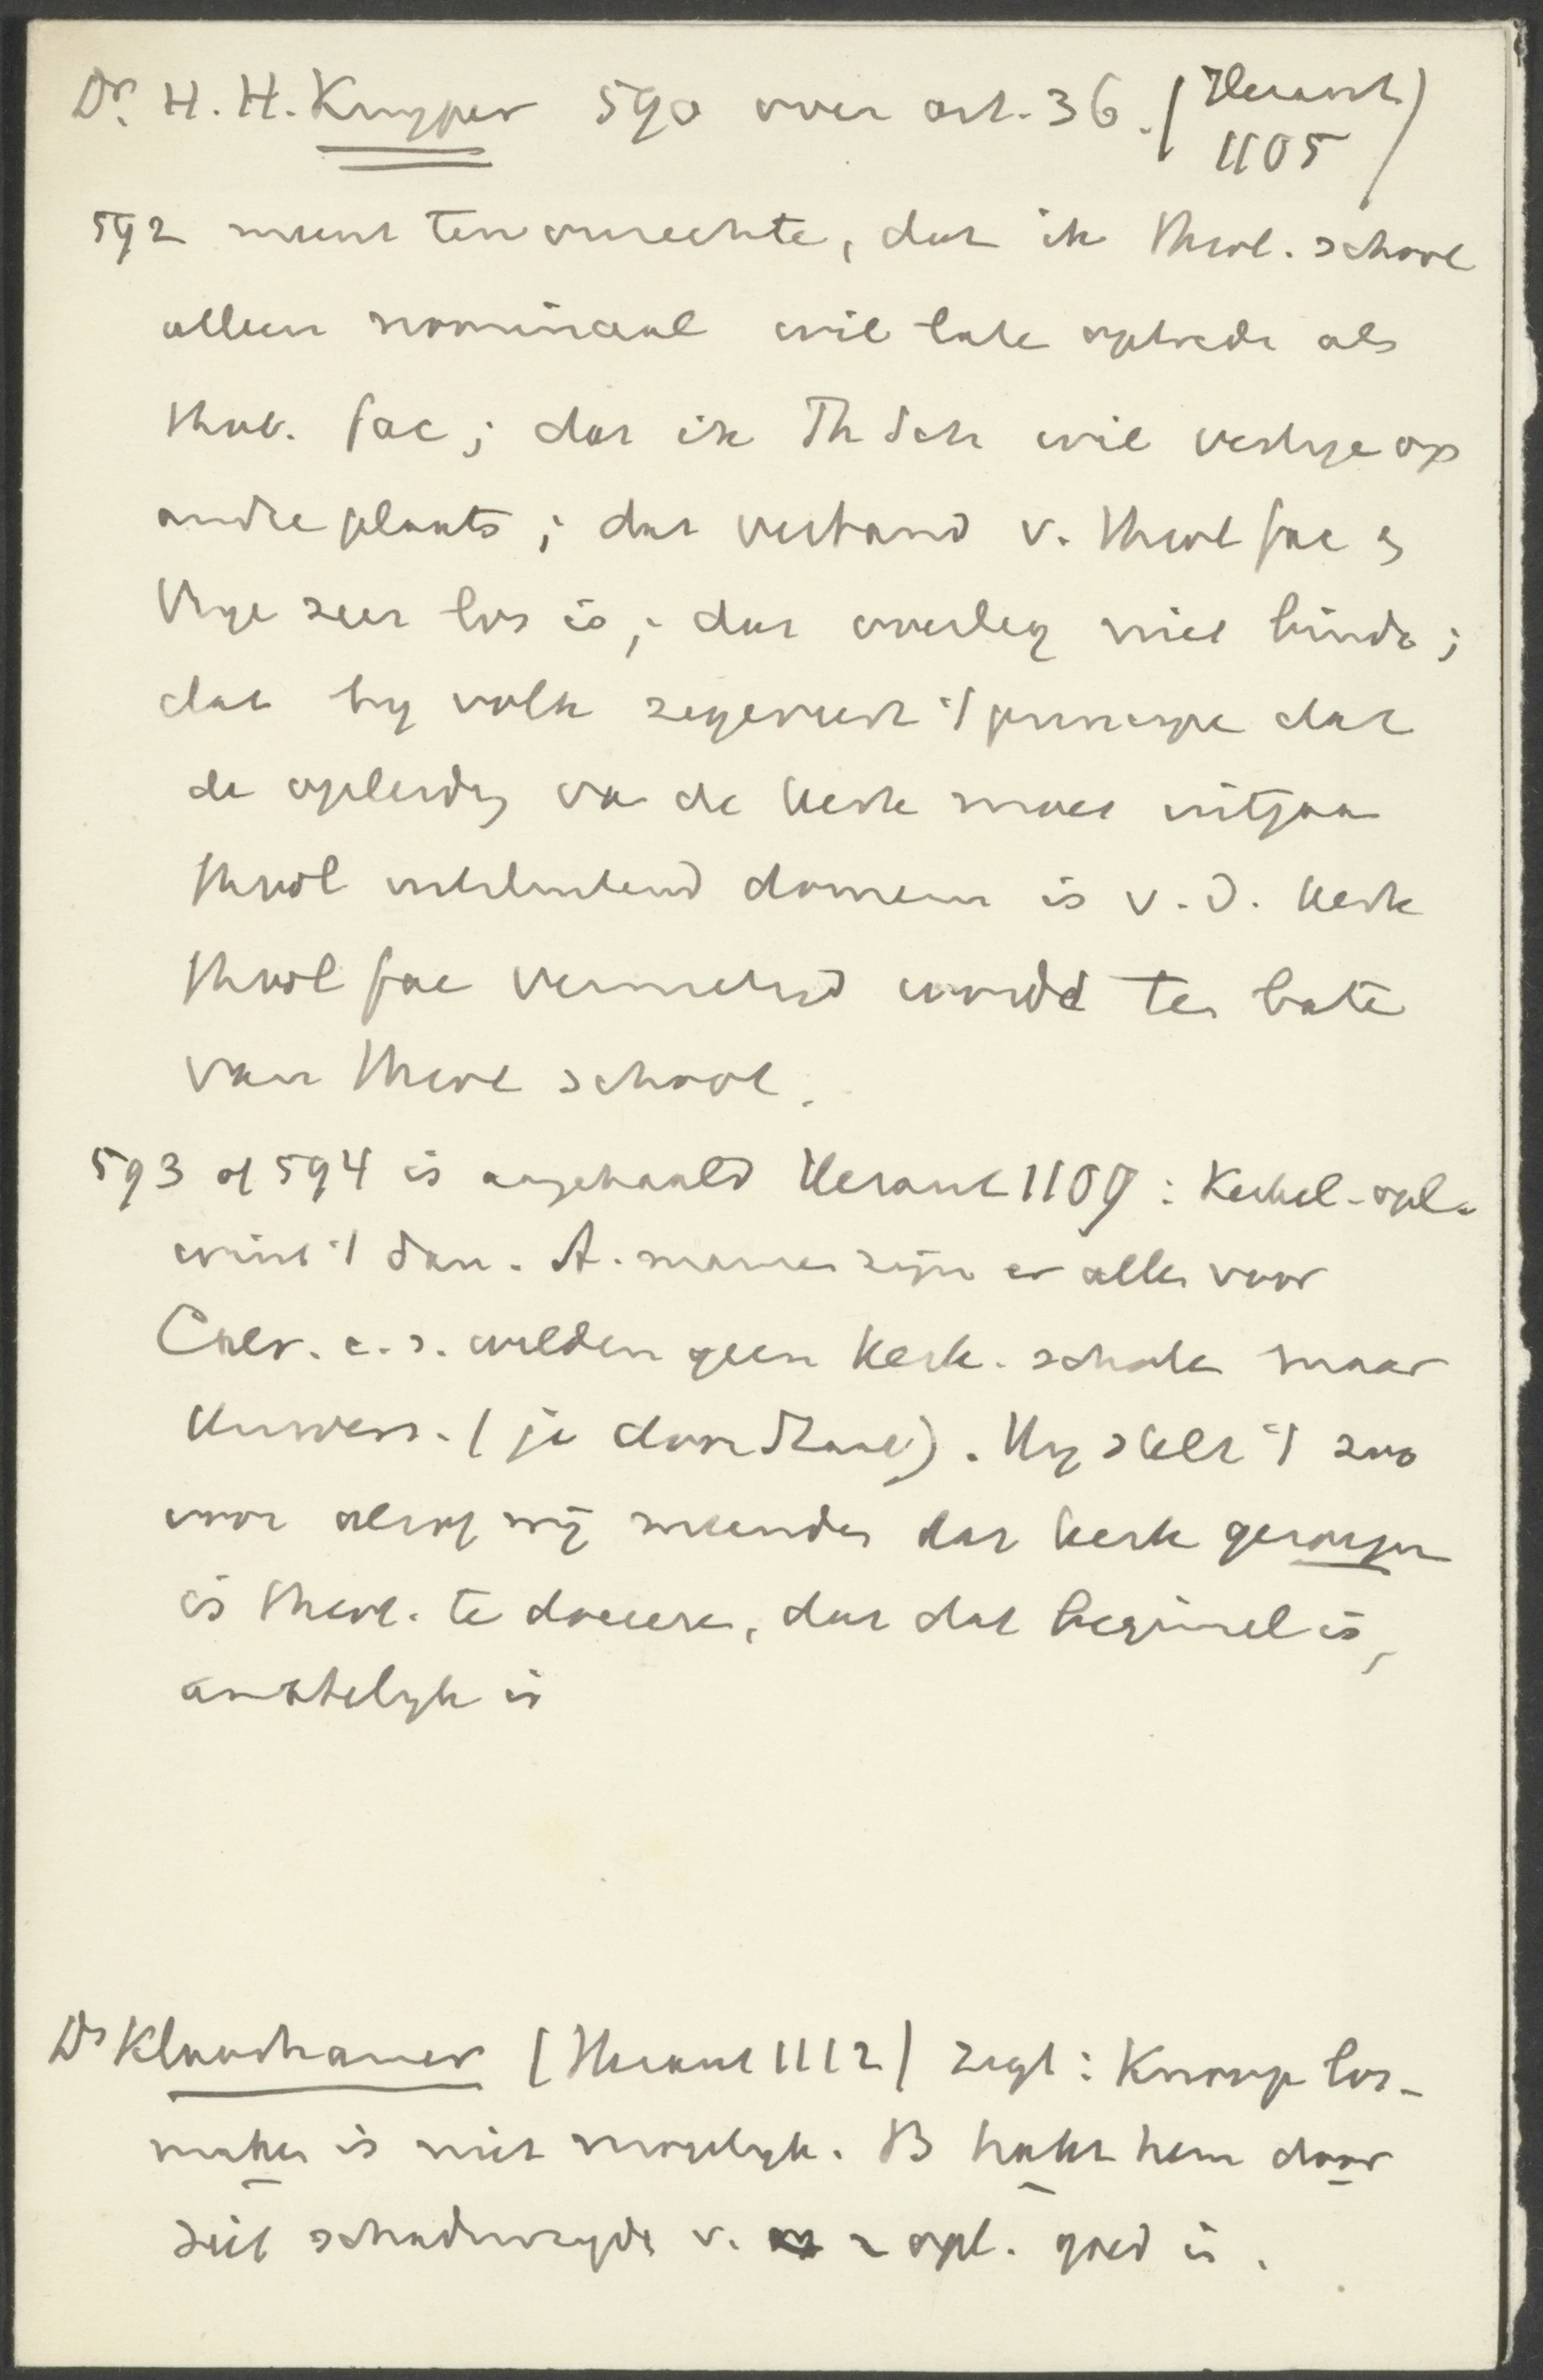 Dr. H. H. Kuyper 590 over art. 36. (Heraut 1105)
592 meent ten onrechte, dat ik theol. school
alleen nominaal wil late optrede als
theol. fac; dat ik Th Sch wil vestige op
andre plaats; dat verband v. theol fac &
Vrye zeer los is; dat overleg niet binde;
dat by volk zegeviert 't principe dat
de opleidg va de kerk moet uitgaa
theol uitsluitend domein is v. d. kerk
theol fac vernietigd wordt ter bate
van theol school.
593 of 594 is aangehaald Heraut 1109: Kerkel. opl.
wint 't dan. A. mannen zijn er alle voor
Calv. c.s. wilden geen kerk. schole maar
Univers. (ja door Staat). Hy stelt 't zoo
voor alsof wij meenden dat kerk geroepen
is theol. te doceere, dat dat beginsel is,
ambtelyk is
Ds Klaarhamer (Heraut 1112) zegt: Knoop los-
maken is niet mogelyk. B hakt hem door
ziet schaduwzyde v. opl. goed in.